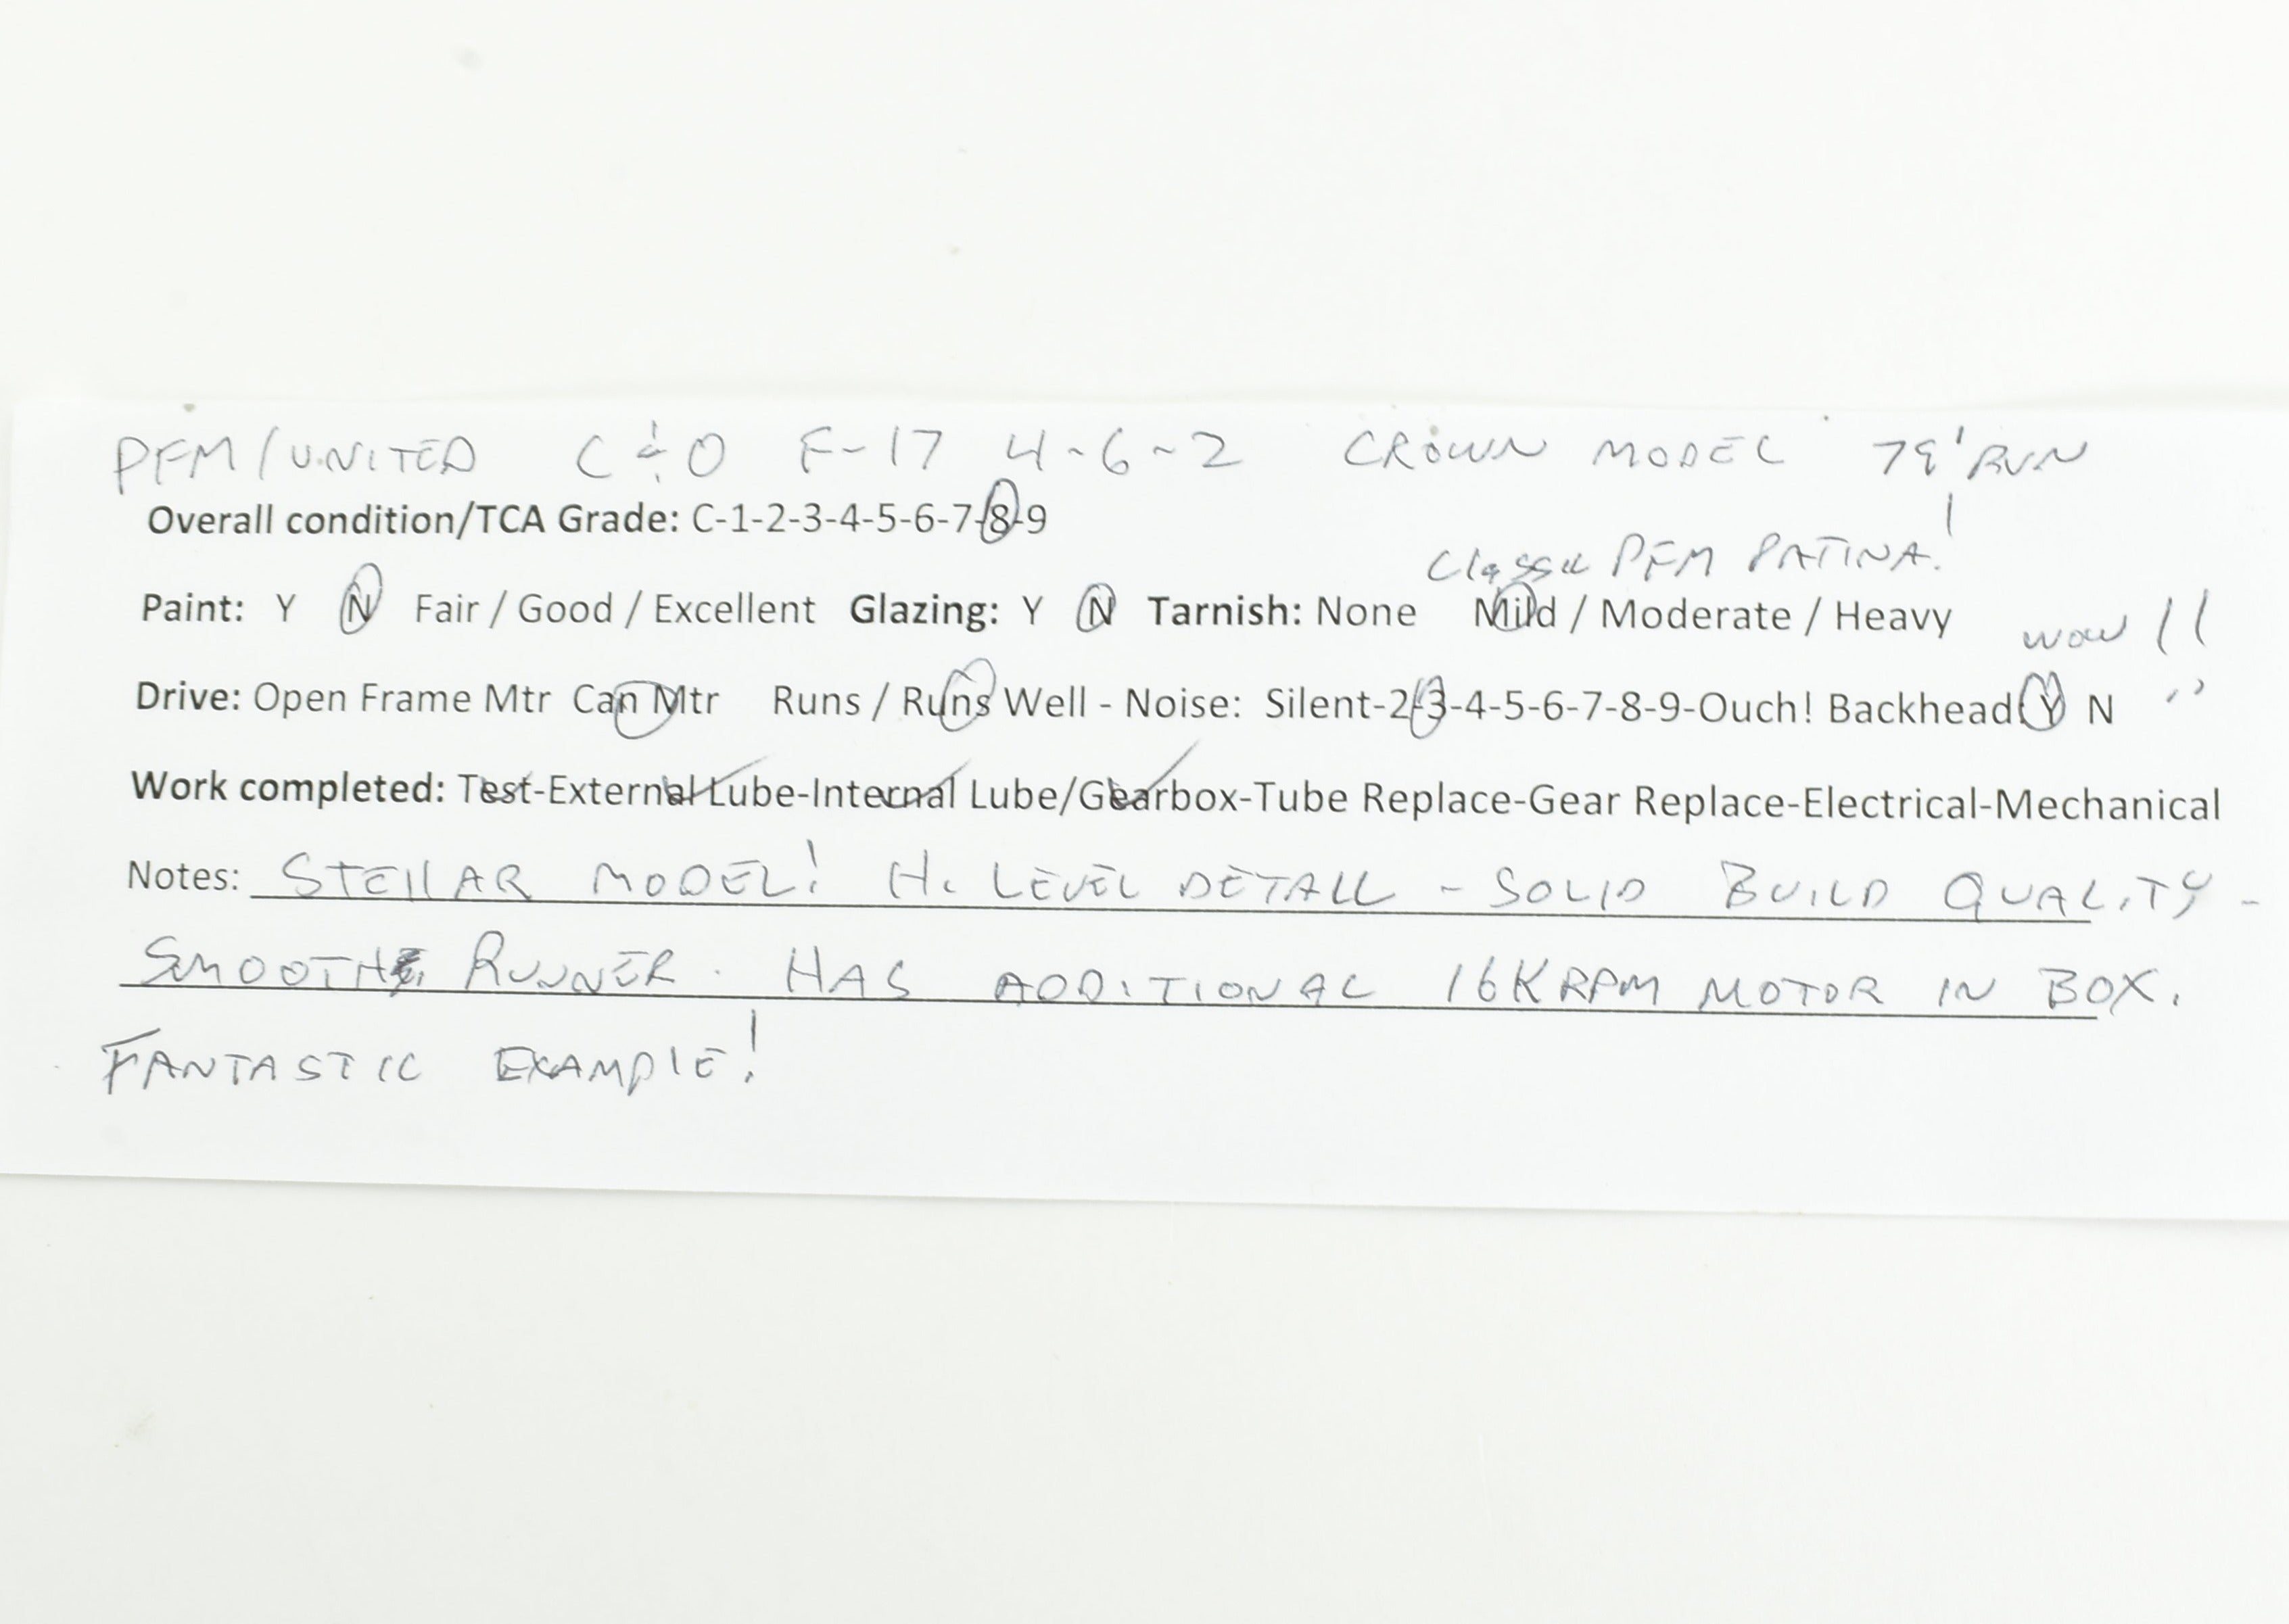 PFM/UNITED C&O F-17 4-6-2 CROWN MODEL 79' RUN
Overall condition/TCA Grade: C-1-2-3-4-5-6-7-8-9
Classic PFM PATINA!
Paint: Y N Fair / Good / Excellent Glazing: Y N Tarnish: None Mild / Moderate / Heavy wow!!
Drive: Open Frame Mtr Can Mtr Runs / Runs Well - Noise: Silent-2-3-4-5-6-7-8-9-Ouch! Backhead: Y N
Work completed: Test-External Lube-Internal Lube/Gearbox-Tube Replace-Gear Replace-Electrical-Mechanical
Notes: STELLAR MODEL! Hi LEVEL DETALL - SOLID BUILD QUALITY -
SMOOTH RUNNER. HAS ADDITIONAL 16K RPM MOTOR IN BOX.
FANTASTIC EXAMPLE!